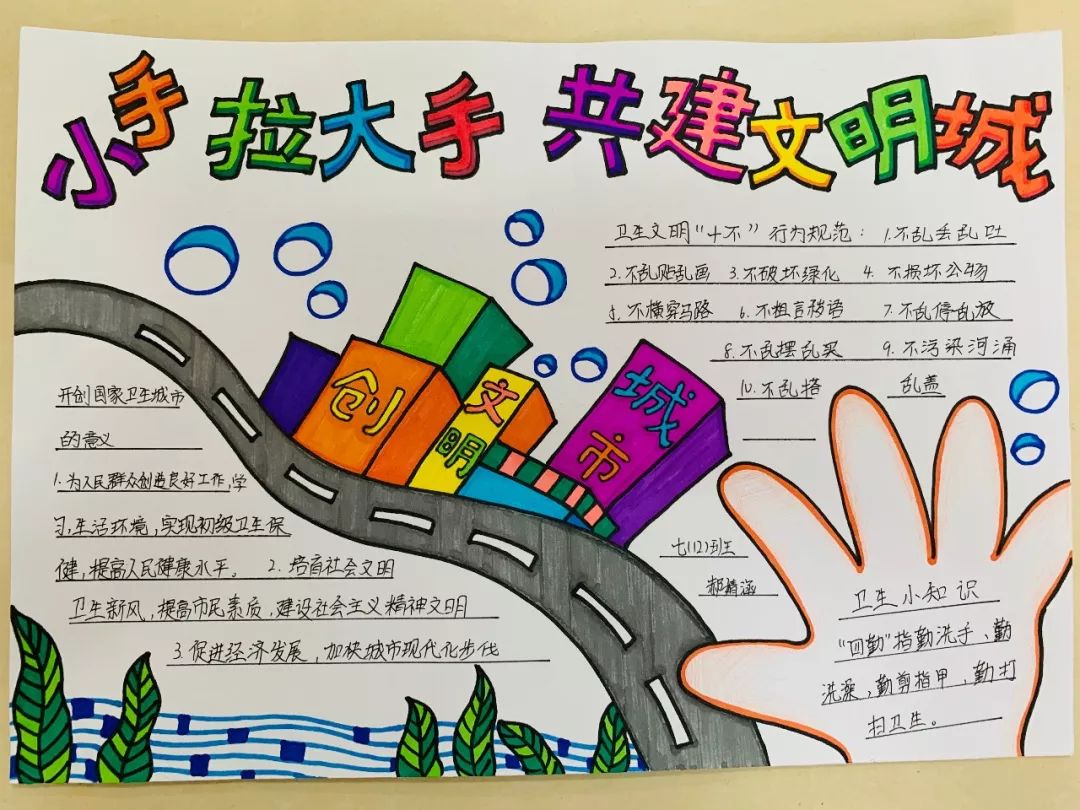 小手拉大手 共建文明城
卫生文明“十不”行为规范：1.不乱丢乱吐
2.不乱贴乱画 3.不破坏绿化 4.不损坏公物
5.不横穿马路 6.不粗言秽语 7.不乱停乱放
8.不乱摆乱买 9.不污染河涌
10.不乱搭乱盖
创文明城市
开创国家卫生城市
的意义
1.为人民群众创造良好工作,学
习,生活环境,实现初级卫生保
健,提高人民健康水平。 2.培育社会文明
卫生新风,提高市民素质,建设社会主义精神文明
3.促进经济发展,加快城市现代化步伐
七(12)班王
精涵
卫生小知识
“四勤”指勤洗手、勤
洗澡,勤剪指甲、勤打
扫卫生。